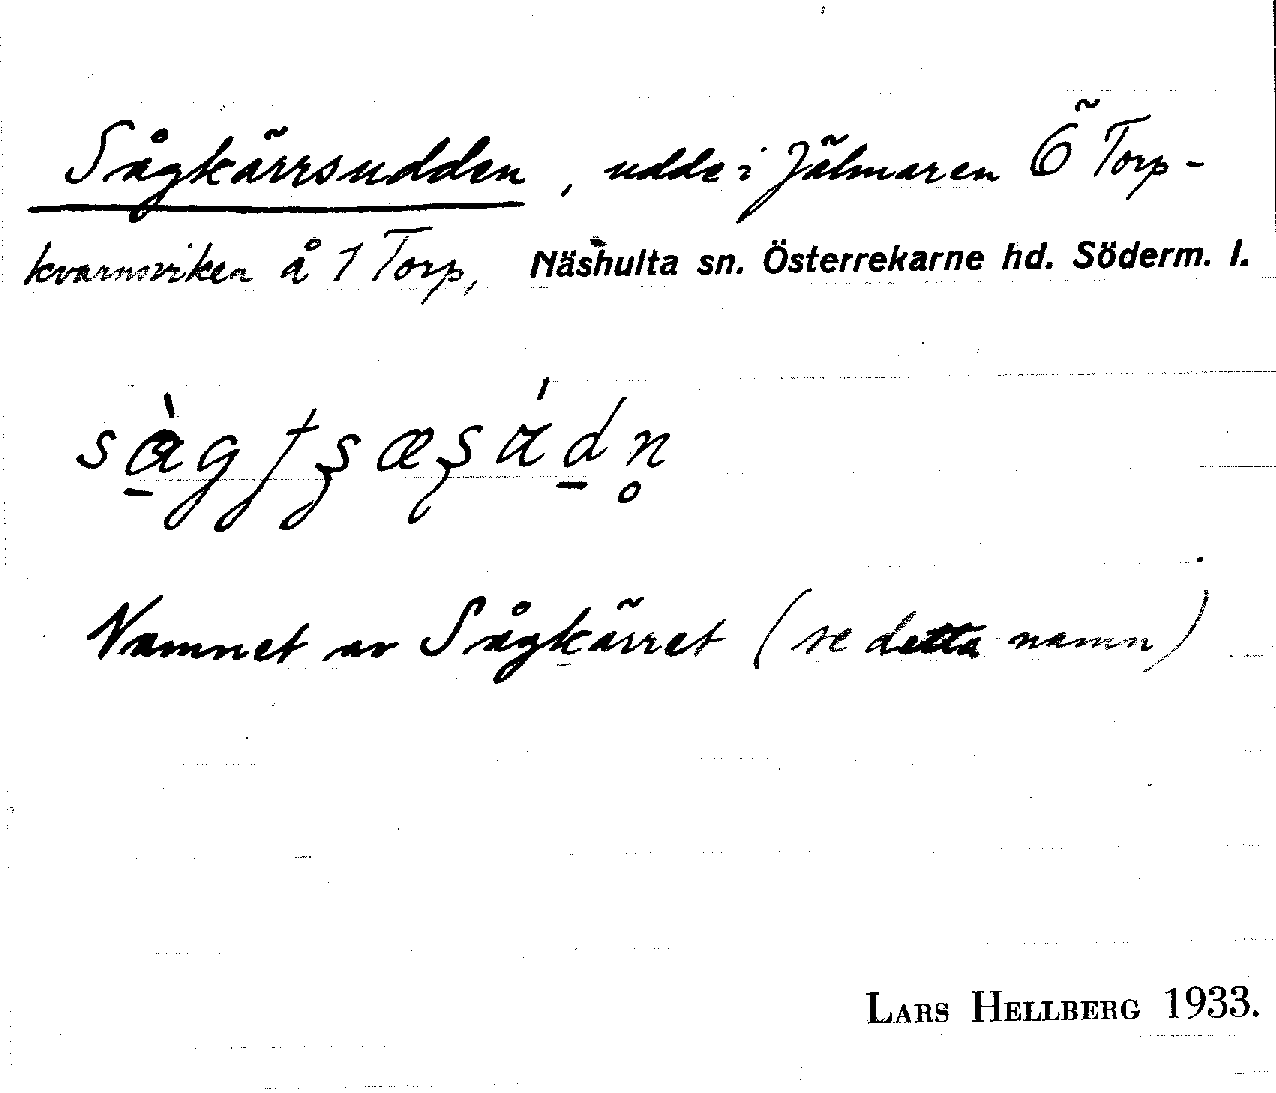 Sågkärrsudden, udde i Jälmaren Ö Torp-
kvarnsviken å 1 Torp, Näshulta sn. Österrekarne hd. Söderm. l.
Namnet av Sågkärret (se detta namn)
LARS HELLBERG 1933.